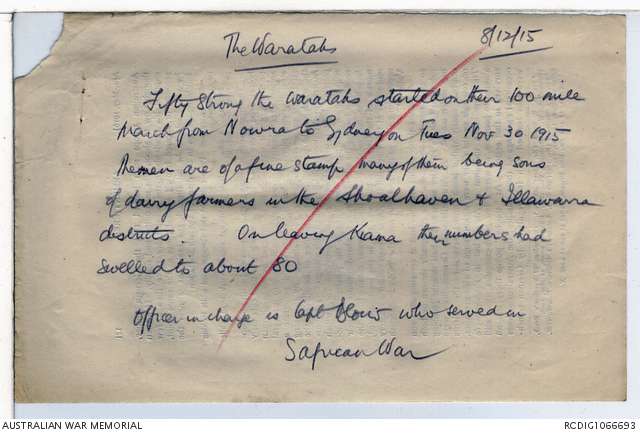 The Waratahs
8/12/15
Fifty strong the Waratahs started on their 100 mile
March from Nowra to Sydney on Tues Nov 30 1915
The men are of a fine stamp many of them being sons
of dairy farmers in the Shoalhaven & Illawarra
districts. On leaving Kiama their numbers had
swelled to about 80
Officer in charge is Capt Blow who served in
S African War
AUSTRALIAN WAR MEMORIAL
RCDIG1066693